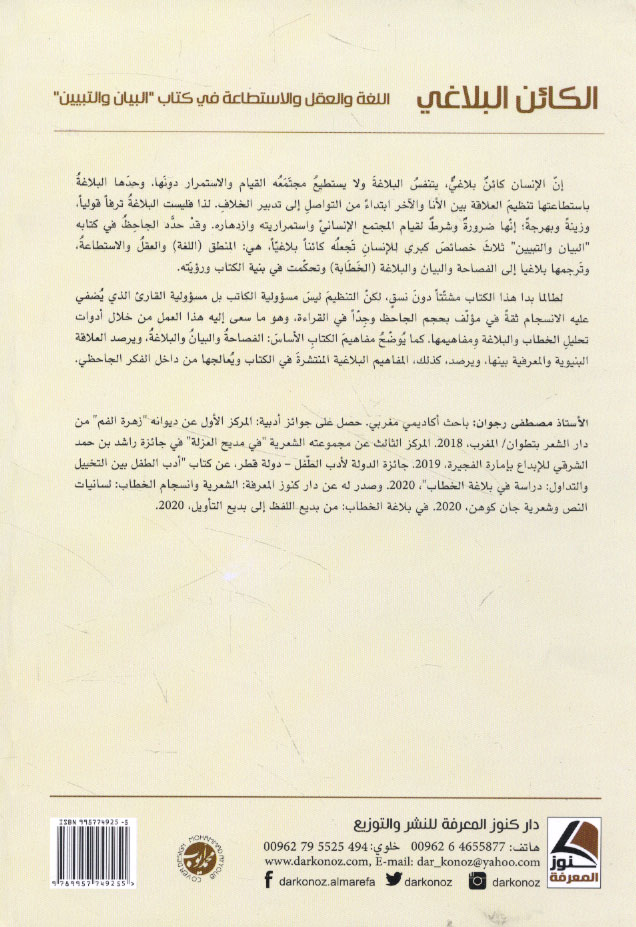 الكائن البلاغي اللغة والعقل والاستطاعة في كتاب "البيان والتبيين"
إنّ الإنسان كائنٌ بلاغيٌّ، يتنفسُ البلاغةَ ولا يستطيعُ مجتمَعُه القيام والاستمرار دونَها. وحدَها البلاغةُ
باستطاعتها تنظيمَ العلاقة بين الأنا والآخر ابتداءً من التواصل إلى تدبير الخلافِ. لذا فليست البلاغةُ ترفاً قولياً،
وزينةً وبهرجةً؛ إنّها ضرورةٌ وشرطٌ لقيام المجتمع الإنسانيّ واستمراريته وازدهاره. وقدْ حدَّد الجاحِظُ في كتابه
"البيان والتبيين" ثلاثَ خصائص كبرى للإنسانِ تَجعلُه كائناً بلاغيّاً، هي: المنطق (اللغة) والعقلُ والاستطاعةُ،
وتَرجمها بلاغيا إلى الفصاحة والبيان والبلاغة (الخَطَابة) وتحكّمت في بنية الكتاب ورؤيَته.
لطالما بدا هذا الكتاب مشتَّتاً دونَ نسقٍ، لكنّ التنظيمَ ليسَ مسؤولية الكاتب بل مسؤولية القارئ الذي يُضفي
عليه الانسجام ثقةً في مؤلّف بحجم الجاحظ وجِدّاً في القراءة، وهو ما سعى إليه هذا العمل من خلال أدوات
تحليل الخطاب والبلاغة ومفاهيمها. كما يُوضّحُ مفاهيمَ الكتاب الأساسَ: الفصاحةُ والبيانُ والبلاغةُ، ويرصد العلاقة
البنيوية والمعرفية بينها، ويرصد، كذلك، المفاهيم البلاغية المنتشرةَ في الكتاب ويُعالجها من داخل الفكر الجاحظي.
الأستاذ مصطفى رجوان: باحث أكاديمي مغربي. حصل على جوائز أدبية: المركز الأول عن ديوانه "زهرة الفم" من
دار الشعر بتطوان/ المغرب، 2018. المركز الثالث عن مجموعته الشعرية "في مديح العزلة" في جائزة راشد بن حمد
الشرقي للإبداع بإمارة الفجيرة، 2019. جائزة الدولة لأدب الطّفل – دولة قطر، عن كتاب "أدب الطفل بين التخييل
والتداول: دراسة في بلاغة الخطاب"، 2020. وصدر له عن دار كنوز المعرفة: الشعرية وانسجام الخطاب: لسانيات
النص وشعرية جان كوهن، 2020. في بلاغة الخطاب: من بديع اللفظ إلى بديع التأويل، 2020.
دار كنوز المعرفة للنشر والتوزيع
هاتف: 00962 6 4655877 خلوي: 00962 79 5525 494
www.darkonoz.com, E-mail: dar_konoz@yahoo.com
darkonoz.almarefa darkonoz darkonoz
كنوز
المعرفة
MOHAMMAD AYYOUB
COVER DESIGN
ISBN 995774925-5
9789957749255